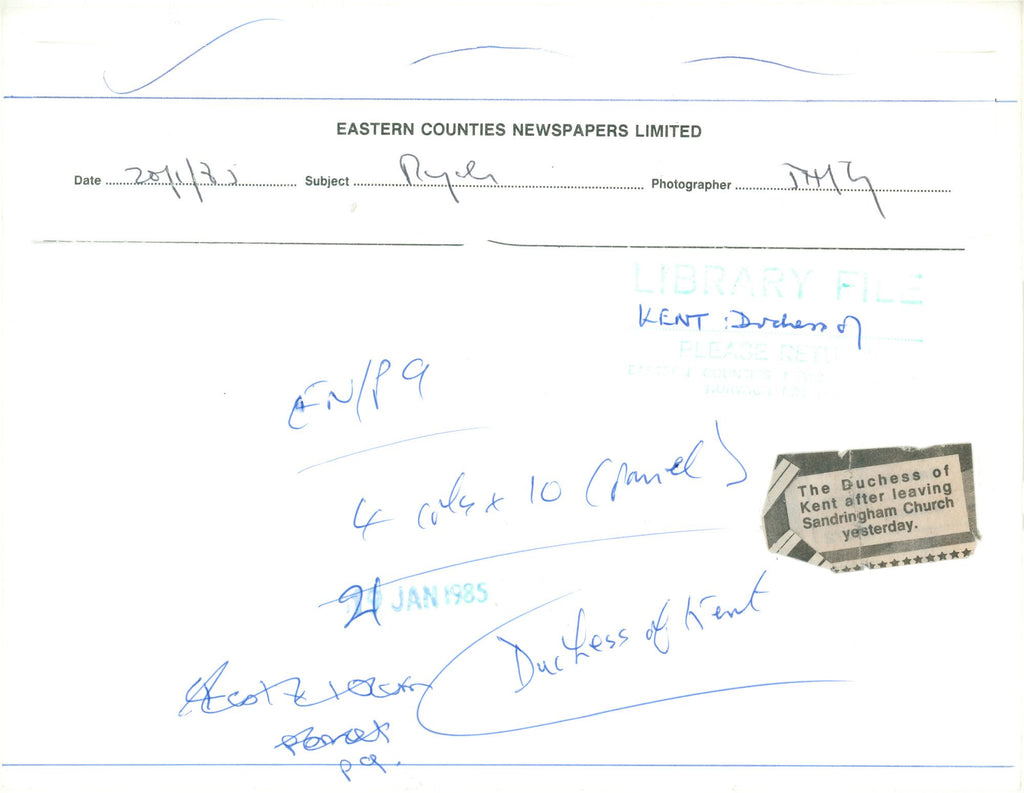 EASTERN COUNTIES NEWSPAPERS LIMITED
Date 20/1/85 Subject Royals Photographer
LIBRARY FILE
KENT : Duchess of
PLEASE RETU
EASTERN COUNTIES
EN/P9
4 cols x 10 (panel)
The Duchess of
Kent after leaving
Sandringham Church
yesterday.
21 JAN 1985
Duchess of Kent
p 9.